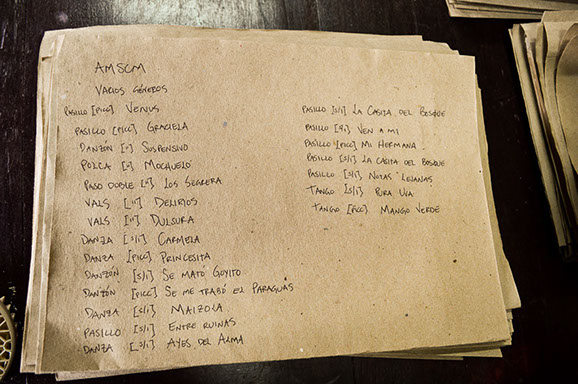 AMSCM
VARIOS GÉNEROS
PASILLO [PICC] VENUS
PASILLO [PICC] GRACIELA
DANZÓN ["] SUSPENSIVO
POLCA ["] MOCHUELO
PASO DOBLE ["] LOS
VALS ["] DELIRIOS
VALS ["] DULSURA
DANZA [S/I] CARMELA
DANZA [PICC] PRINCESITA
DANZÓN [S/I] SE MATÓ GOYITO
DANZÓN [PICC] SE ME TRABÓ EL PARAGUAS
DANZA [S/I] MAIZOLA
PASILLO [S/I] ENTRE RUINAS
DANZA [S/I] AYES DEL ALMA
PASILLO [S/I] LA CASITA DEL BOSQUE
PASILLO [S/I] VEN A MI
PASILLO [PICC] MI HERMANA
PASILLO [S/I] LA CASITA DEL BOSQUE
PASILLO [S/I] NOTAS LEJANAS
TANGO [S/I] PURA UVA
TANGO [PICC] MANGO VERDE